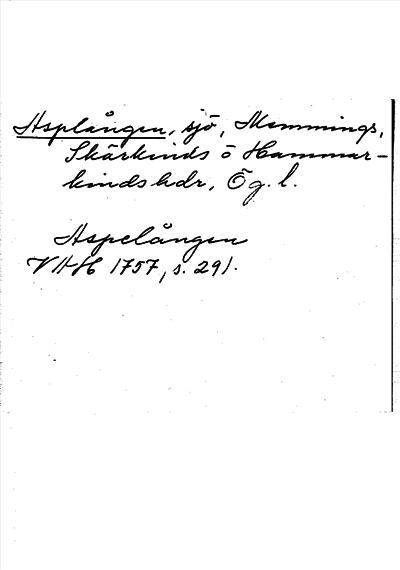 Asplången, sjö, Memmings,
Skärkinds o Hammar-
kindshdr, Ög. l.
Aspelången
VAH 1757, s. 291.